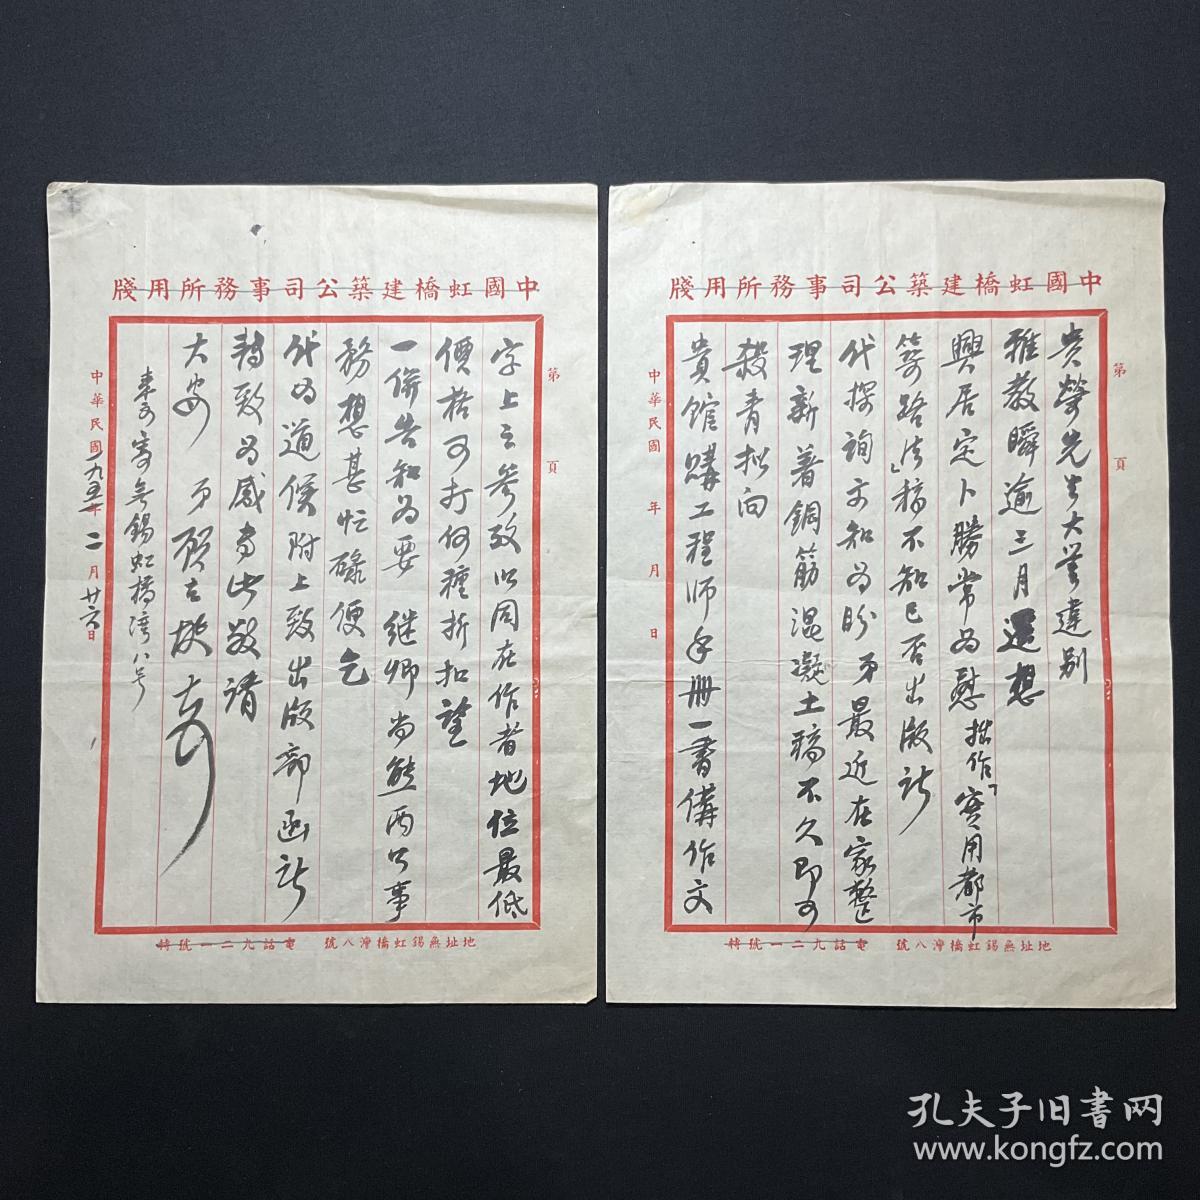 中國虹橋建築公司事務所用牋
第 頁
貴榮先生大鑒違别
雅教瞬逾三月遥想
興居定卜勝常為慰拙作「實用都市
築路法」稿不知已否出版祈
代探詢示知為盼弟最近在家整
理新著鋼筋混凝土稿不久即可
殺青拟向
貴館購工程師手册一書備作文
中華民國 年 月 日
地址無錫虹橋灣八號 電話九二一號轉
中國虹橋建築公司事務所用牋
第 頁
字上之參攷此因在作者地位最低
價格可打何種折扣望
一併告知為要 繼卿尚熊两公事
務想甚忙碌便乞
代為道候附上致出版部函祈
轉致為感専此敬請
大安 弟 顧
来示寄無錫虹橋湾八号
中華民國一九五一年二月廿六日
地址無錫虹橋灣八號 電話九二一號轉
孔夫子旧书网
www.kongfz.com